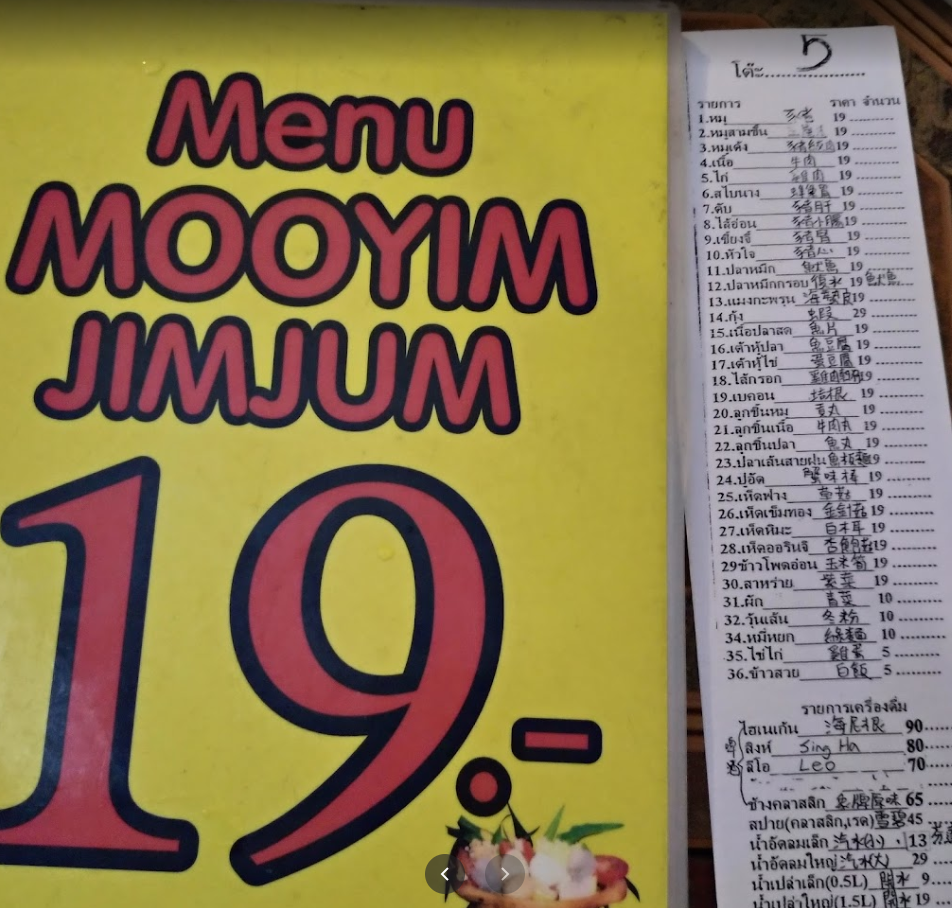 Menu
MOOYIM
JIMJUM
19.-
โต๊ะ.................... 5
รายการ ราคา จำนวน
1.หมู 19
2.หมูสามชั้น 19
3.หมูเด้ง 19
4.เนื้อ 牛肉 19
5.ไก่ 雞肉 19
6.สไบนาง 19
7.ตับ 豬肝 19
8.ไส้อ่อน 豬小腸 19
9.เซี่ยงจี๊ 豬腎 19
10.หัวใจ 豬心 19
11.ปลาหมึก 魷魚 19
12.ปลาหมึกกรอบ 19 魷魚
13.แมงกะพรุน 19
14.กุ้ง 蝦 29
15.เนื้อปลาสด 魚片 19
16.เต้าหู้ปลา 魚豆腐 19
17.เต้าหู้ไข่ 蛋豆腐 19
18.ไส้กรอก 19
19.เบคอน 培根 19
20.ลูกชิ้นหมู 19
21.ลูกชิ้นเนื้อ 牛肉丸 19
22.ลูกชิ้นปลา 魚丸 19
23.ปลาเส้นสายฝน 19
24.ปูอัด 蟹味棒 19
25.เห็ดฟาง 草菇 19
26.เห็ดเข็มทอง 金針菇 19
27.เห็ดหิมะ 白木耳 19
28.เห็ดออรินจิ 杏鮑菇 19
29ข้าวโพดอ่อน 玉米筍 19
30.สาหร่าย 紫菜 19
31.ผัก 青菜 10
32.วุ้นเส้น 冬粉 10
34.หมี่หยก 綠麵 10
35.ไข่ไก่ 雞蛋 5
36.ข้าวสวย 白飯 5
รายการเครื่องดื่ม
ไฮเนเก้น 海尼根 90
สิงห์ Sing Ha 80
ลีโอ Leo 70
ช้างคลาสสิก 象牌原味 65
สปาย(คลาสสิก,เรด) 45
น้ำอัดลมเล็ก 汽水(小) 13
น้ำอัดลมใหญ่ 汽水(大) 29
น้ำเปล่าเล็ก(0.5L) 開水 9
น้ำเปล่าใหญ่(1.5L) 開水 19